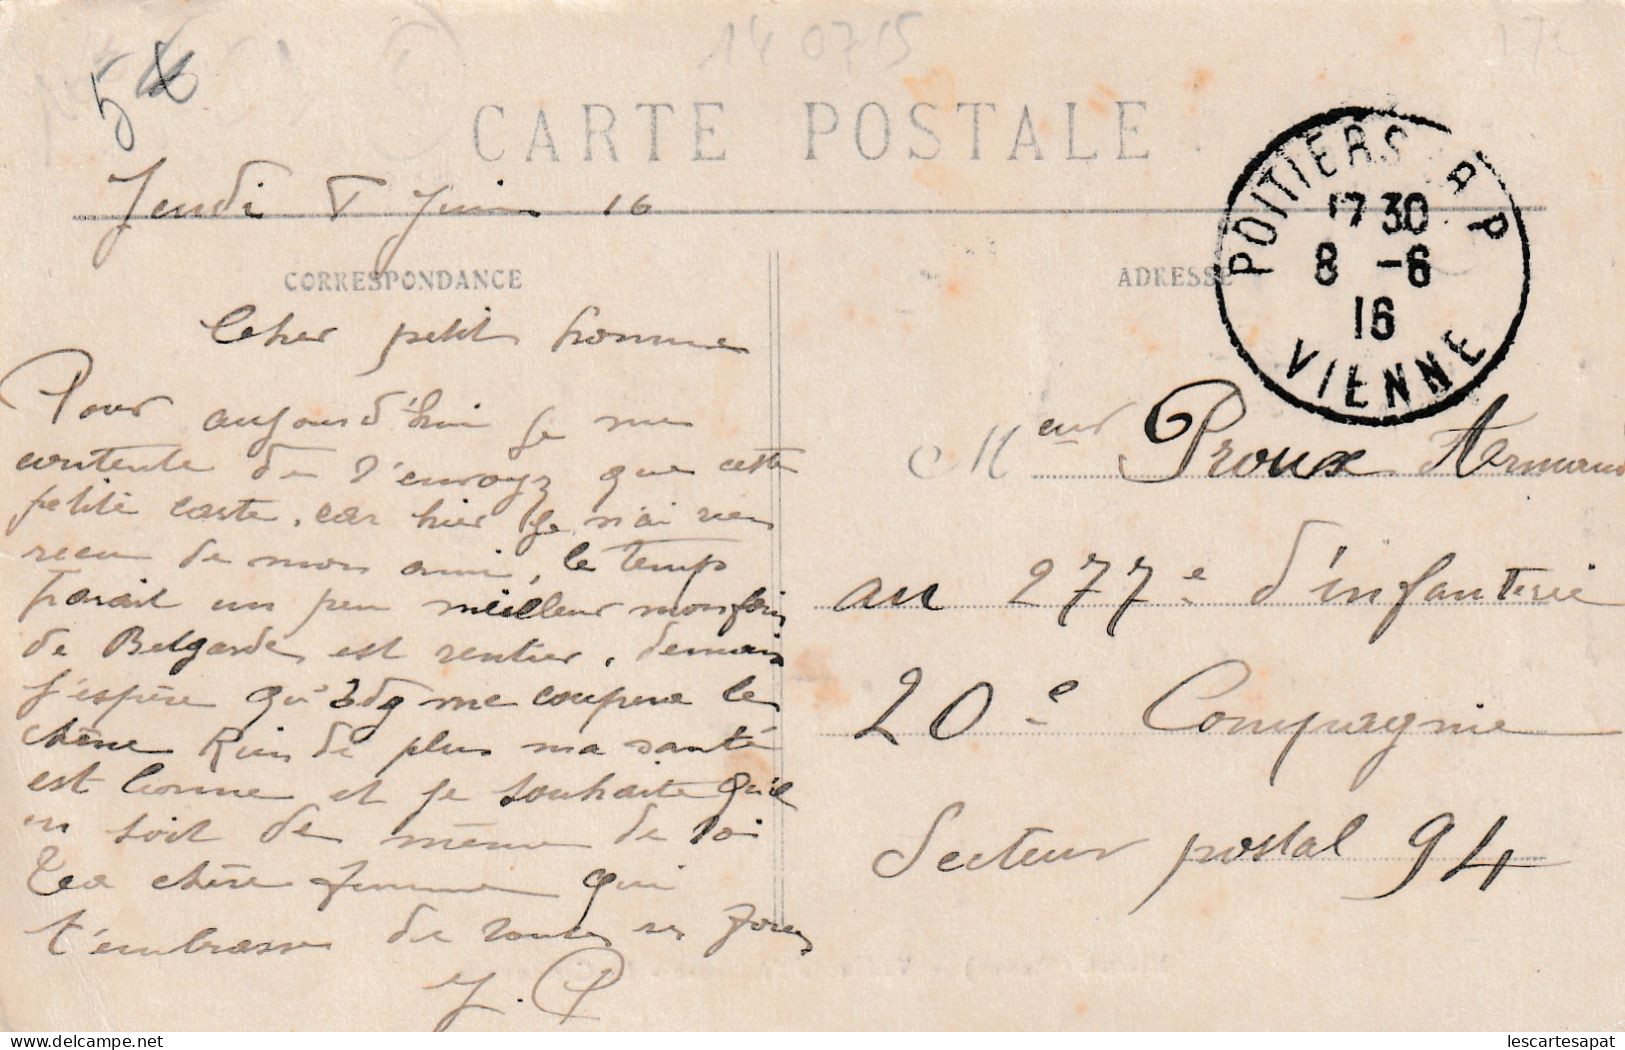 14 07 15
5
CARTE POSTALE
Jeudi 8 Juin 16
CORRESPONDANCE
Cher petit homme
Pour aujourd'hui je me
contente de t'envoyz que cette
petite carte, car hier je n'ai rien
recu de mon ami, le temps
parait un peu meilleur mon foin
de Belgarde est rentier, demain
j'espère qu'Edg me coupera le
chêne Rien de plus ma santé
est bonne et je souhaite qu'il
en soit de même de toi
Ta chère femme qui
t'embrasse de toutes ses forces
Y. P
ADRESSE
POITIERS R.P
17 30
8 -6
16
VIENNE
Meur Proux Armand
au 277e d'infanterie
20e Compagnie
Secteur postal 94
delcampe.net
lescartesapat